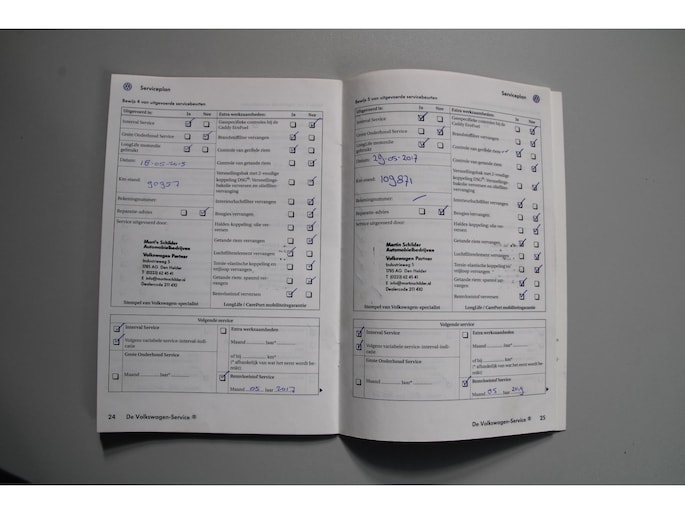 Serviceplan
Bewijs 4 van uitgevoerde servicebeurten
Uitgevoerd is: Ja Nee
Interval Service
Grote Onderhoud Service
LongLife motorolie
gebruikt
Datum: 18-05-2015
Km-stand: 90957
Rekeningnummer:
Reparatie-advies
Service uitgevoerd door:
Martin Schilder
Automobielbedrijven
Volkswagen Partner
Industrieweg 5
1785 AG Den Helder
T (0223) 63 45 41
E info@martinschilder.nl
Dealercode 211 410
Stempel van Volkswagen-specialist
Extra werkzaamheden: Ja Nee
Gasspecifieke controles bij de
Caddy EcoFuel
Brandstoffilter vervangen
Controle van geribde riem
Controle van getande riem
Versnellingsbak met 2-voudige
koppeling DSG®: Versnellings-
bakolie verversen en oliefilter-
vervanging
Interieurluchtfilter vervangen
Bougies vervangen
Haldex-koppeling: olie ver-
versen
Getande riem vervangen
Luchtfilterelement vervangen
Torsie-elastische koppeling en
vrijloop vervangen
Getande riem: spanrol ver-
vangen
Remvloeistof verversen
LongLife / CarePort mobiliteitsgarantie
Volgende service
Interval Service
Volgens variabele service-interval-indi-
catie
Grote Onderhoud Service
Maand Jaar*
Extra werkzaamheden:
Maand Jaar*
of bij km*
(* afhankelijk van wat het eerst wordt be-
reikt)
Remvloeistof Service
Maand 05 Jaar 2017
24 De Volkswagen-Service ®
Serviceplan
Bewijs 5 van uitgevoerde servicebeurten
Uitgevoerd is: Ja Nee
Interval Service
Grote Onderhoud Service
LongLife motorolie
gebruikt
Datum: 29-05-2017
Km-stand: 109871
Rekeningnummer:
Reparatie-advies
Service uitgevoerd door:
Martin Schilder
Automobielbedrijven
Volkswagen Partner
Industrieweg 5
1785 AG Den Helder
T (0223) 63 45 41
E info@martinschilder.nl
Dealercode 211 410
Stempel van Volkswagen-specialist
Extra werkzaamheden: Ja Nee
Gasspecifieke controles bij de
Caddy EcoFuel
Brandstoffilter vervangen
Controle van geribde riem
Controle van getande riem
Versnellingsbak met 2-voudige
koppeling DSG®: Versnellings-
bakolie verversen en oliefilter-
vervanging
Interieurluchtfilter vervangen
Bougies vervangen
Haldex-koppeling: olie ver-
versen
Getande riem vervangen
Luchtfilterelement vervangen
Torsie-elastische koppeling en
vrijloop vervangen
Getande riem: spanrol ver-
vangen
Remvloeistof verversen
LongLife / CarePort mobiliteitsgarantie
Volgende service
Interval Service
Volgens variabele service-interval-indi-
catie
Grote Onderhoud Service
Maand Jaar*
Extra werkzaamheden:
Maand Jaar*
of bij km*
(* afhankelijk van wat het eerst wordt be-
reikt)
Remvloeistof Service
Maand 05 Jaar
De Volkswagen-Service ® 25